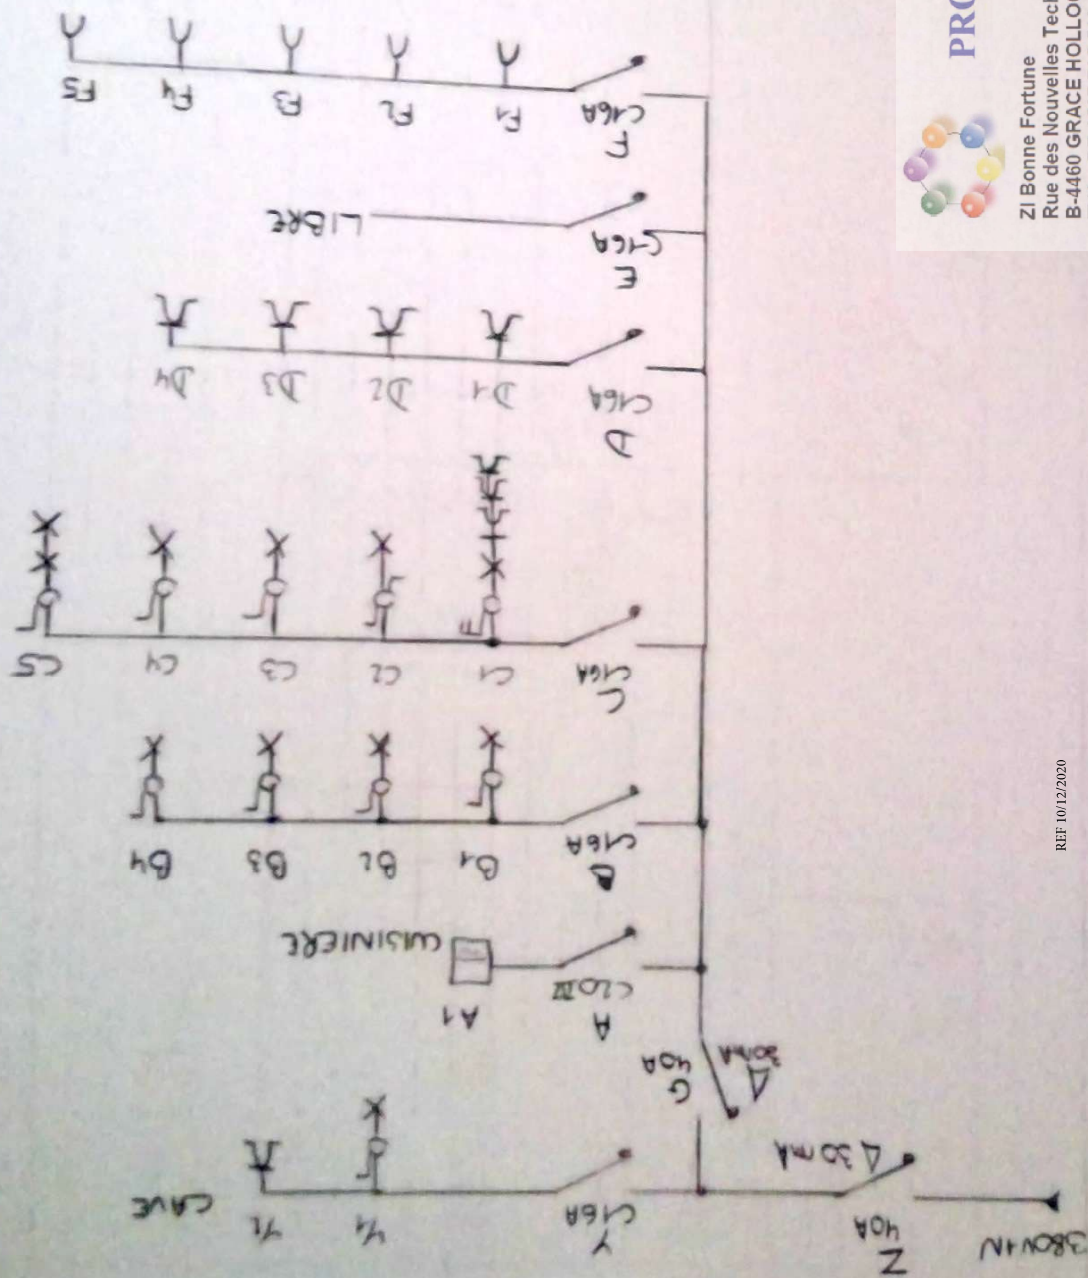 380V+N
Z
40A
Δ 30mA
Y
C16A
Y1 Y2 CAVE
G
40A
Δ
30mA
A
C20 IV
A1
CUISINIERE
B
C16A
B1 B2 B3 B4
C
C16A
C1 C2 C3 C4 C5
D
C16A
D1 D2 D3 D4
E
C16A
LIBRE
F
C16A
F1 F2 F3 F4 F5
ZI Bonne Fortune
Rue des Nouvelles
B-4460 GRACE
REF 10/12/2020